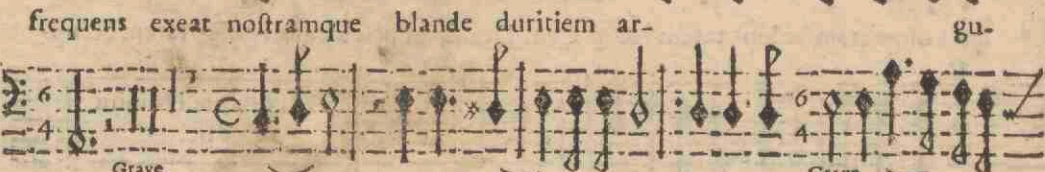 frequens exeat noſtramque blande duritiem ar- gu-
6
4
6
4
Grave